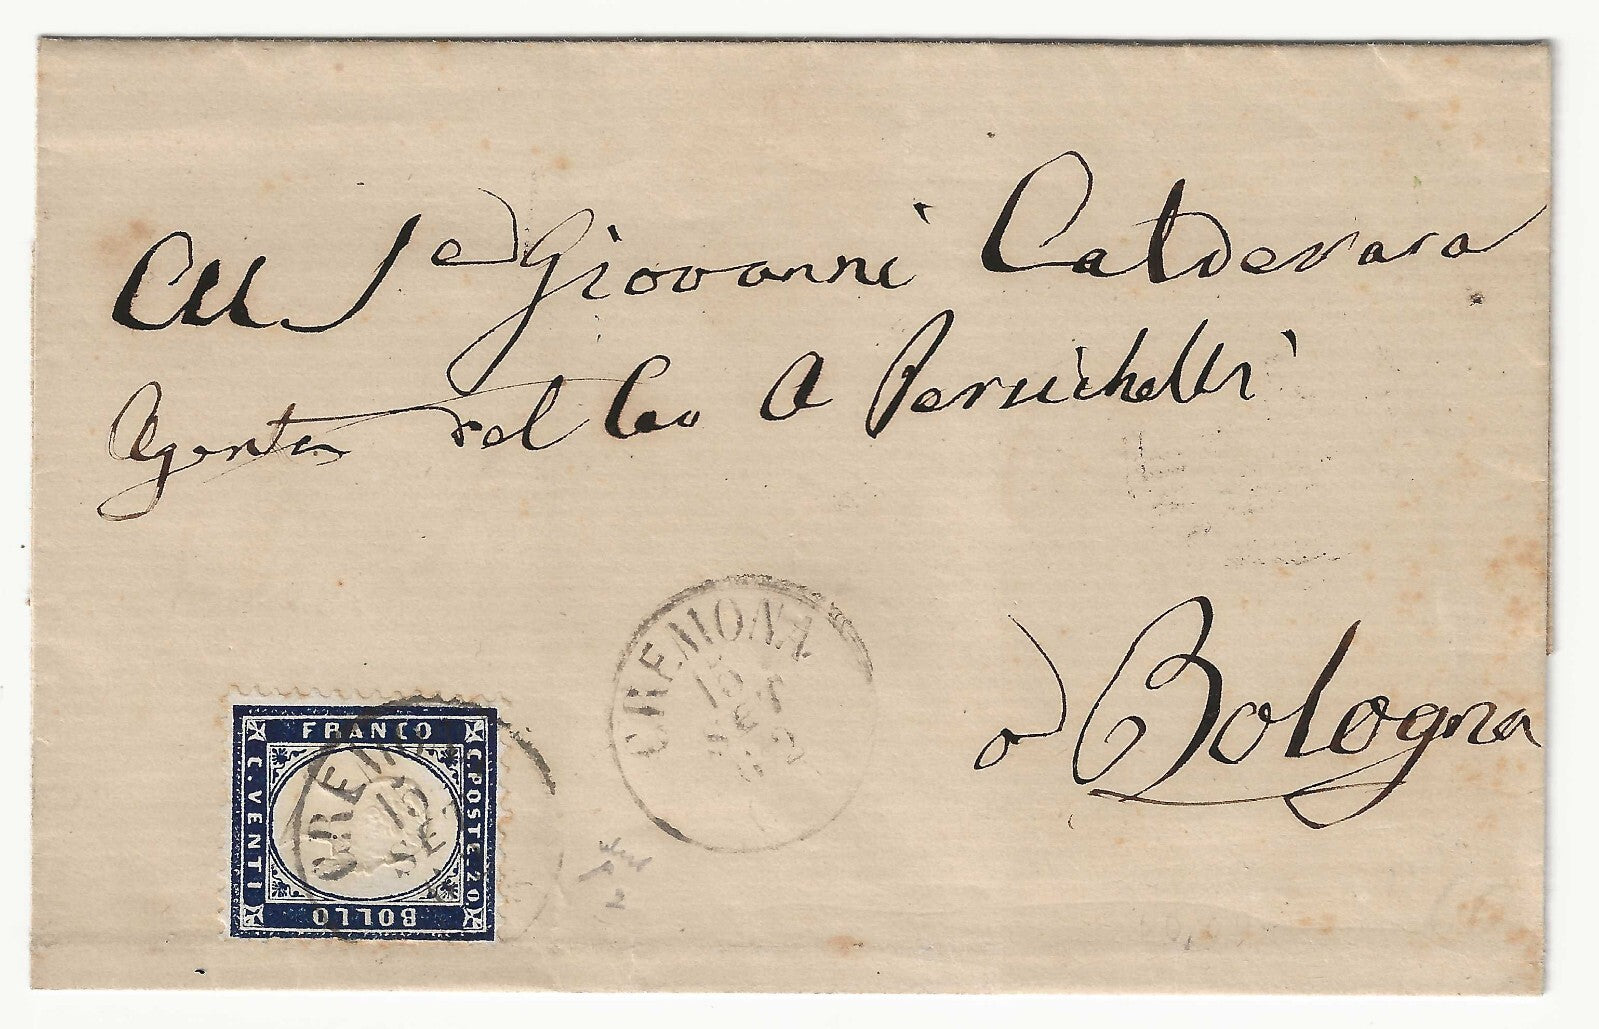 Al Sr Giovanni Calderara
Agente del Cav A Persichelli
a Bologna
CREMONA
15
SET
62
FRANCO
C. POSTE 20
BOLLO
C. VENTI
CREMONA
15
SET